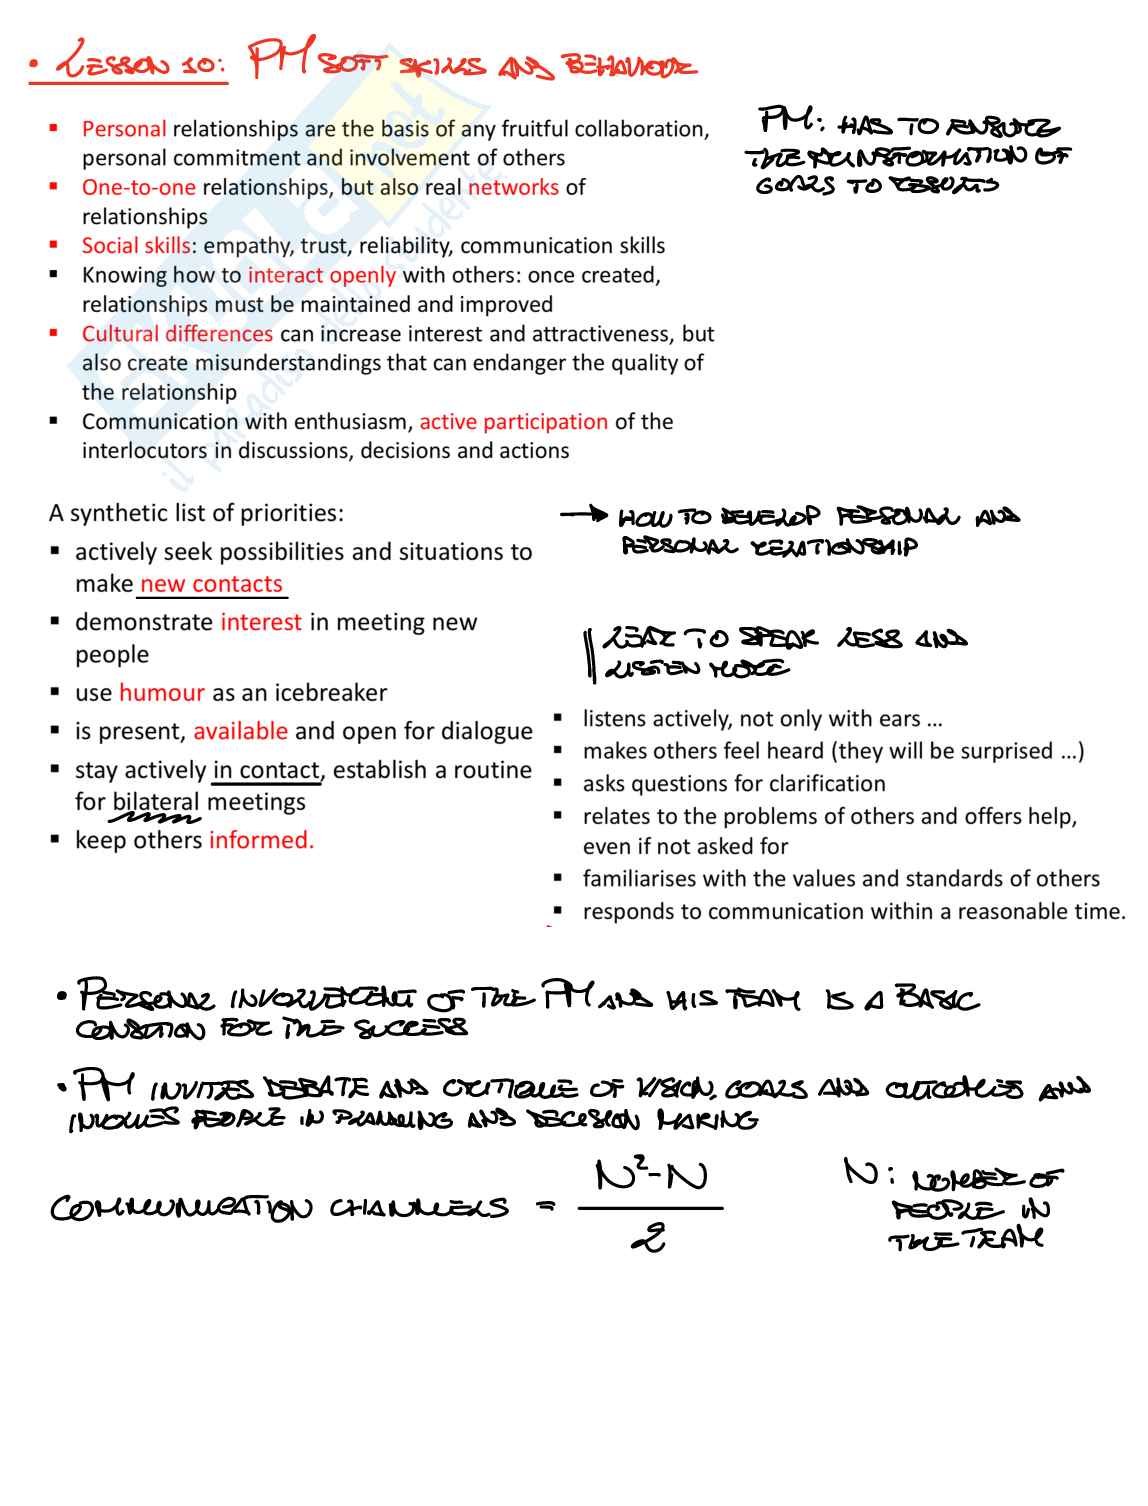 • LESSON 10: PM SOFT SKILLS AND BEHAVIOUR
▪ Personal relationships are the basis of any fruitful collaboration,
personal commitment and involvement of others
▪ One-to-one relationships, but also real networks of
relationships
▪ Social skills: empathy, trust, reliability, communication skills
▪ Knowing how to interact openly with others: once created,
relationships must be maintained and improved
▪ Cultural differences can increase interest and attractiveness, but
also create misunderstandings that can endanger the quality of
the relationship
▪ Communication with enthusiasm, active participation of the
interlocutors in discussions, decisions and actions
PM: HAS TO ENSURE
THE TRANSFORMATION OF
GOALS TO RESULTS
skuola.net
il paradiso dello studente
A synthetic list of priorities:
▪ actively seek possibilities and situations to
make new contacts
▪ demonstrate interest in meeting new
people
▪ use humour as an icebreaker
▪ is present, available and open for dialogue
▪ stay actively in contact, establish a routine
for bilateral meetings
▪ keep others informed.
→ HOW TO DEVELOP PERSONAL AND
PERSONAL RELATIONSHIP
TO SPEAK LESS AND
LISTEN MORE
▪ listens actively, not only with ears ...
▪ makes others feel heard (they will be surprised ...)
▪ asks questions for clarification
▪ relates to the problems of others and offers help,
even if not asked for
▪ familiarises with the values and standards of others
▪ responds to communication within a reasonable time.
• PERSONAL INVOLVEMENT OF THE PM AND HIS TEAM IS A BASIC
CONDITION FOR THE SUCCESS
• PM INVITES DEBATE AND CRITIQUE OF VISION, GOALS AND OUTCOMES AND
INVOLVES PEOPLE IN PLANNING AND DECISION MAKING
COMMUNICATION CHANNELS = N²-N / 2
N: NUMBER OF
PEOPLE IN
THE TEAM